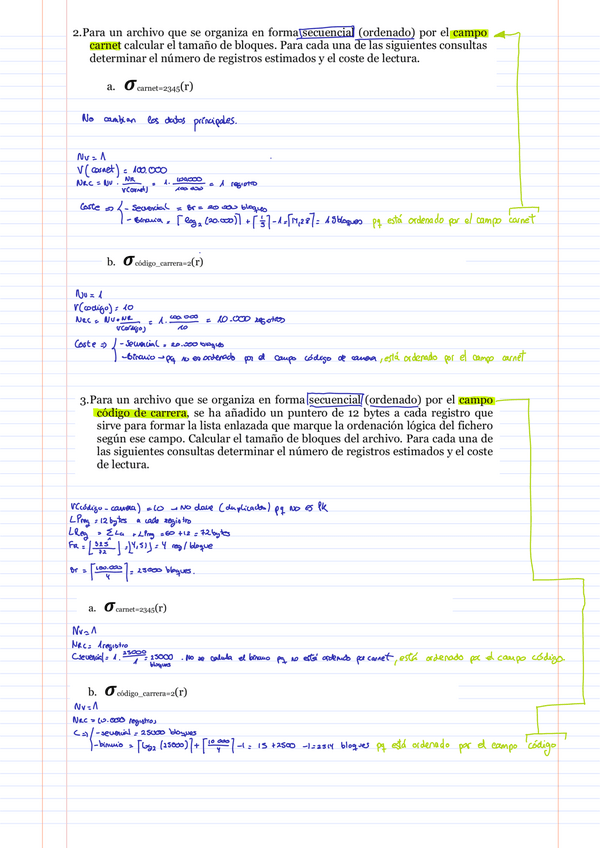 2.Para un archivo que se organiza en forma secuencial (ordenado) por el campo
carnet calcular el tamaño de bloques. Para cada una de las siguientes consultas
determinar el número de registros estimados y el coste de lectura.
a. σcarnet=2345(r)
No cambian los datos principales.
Nv = 1
V(carnet) = 100.000
NRC = Nv · NR/V(carnet) = 1 · 100.000/100.000 = 1 registro
Coste => { - Secuencial = Br = 20.000 bloques
- Binaria = ⌈log2 (20.000)⌉ + ⌈1/5⌉ - 1 = ⌈14,28⌉ = 15 bloques pq está ordenado por el campo carnet
b. σcódigo_carrera=2(r)
Nv = 1
V(codigo) = 10
NRC = Nv · NR/V(codigo) = 1 · 100.000/10 = 10.000 registros
Coste => { - Secuencial = 20.000 bloques
- binario -> pq no es ordenado por el campo código de carrera, está ordenado por el campo carnet
3.Para un archivo que se organiza en forma secuencial (ordenado) por el campo
código de carrera, se ha añadido un puntero de 12 bytes a cada registro que
sirve para formar la lista enlazada que marque la ordenación lógica del fichero
según ese campo. Calcular el tamaño de bloques del archivo. Para cada una de
las siguientes consultas determinar el número de registros estimados y el coste
de lectura.
V(código-carrera) = 10 -> No clave (duplicados) pq no es PK
LPreg = 12 bytes a cada registro
LReg = ΣLa + LPreg = 60 + 12 = 72 bytes
FR = ⌊325/72⌋ = ⌊4,51⌋ = 4 reg/bloque
Br = ⌈100.000/4⌉ = 25000 bloques.
a. σcarnet=2345(r)
Nv = 1
NRC = 1 registro
Csecuencial = 1 · 25000/1 = 25000 bloques . No se calcula el binario pq no está ordenado por carnet, está ordenado por el campo código
b. σcódigo_carrera=2(r)
Nv = 1
NRC = 10.000 registros
C => { - secuencial = 25000 bloques
- binario = ⌈log2 (25000)⌉ + ⌈10.000/4⌉ - 1 = 15 + 2500 - 1 = 2514 bloques pq está ordenado por el campo código